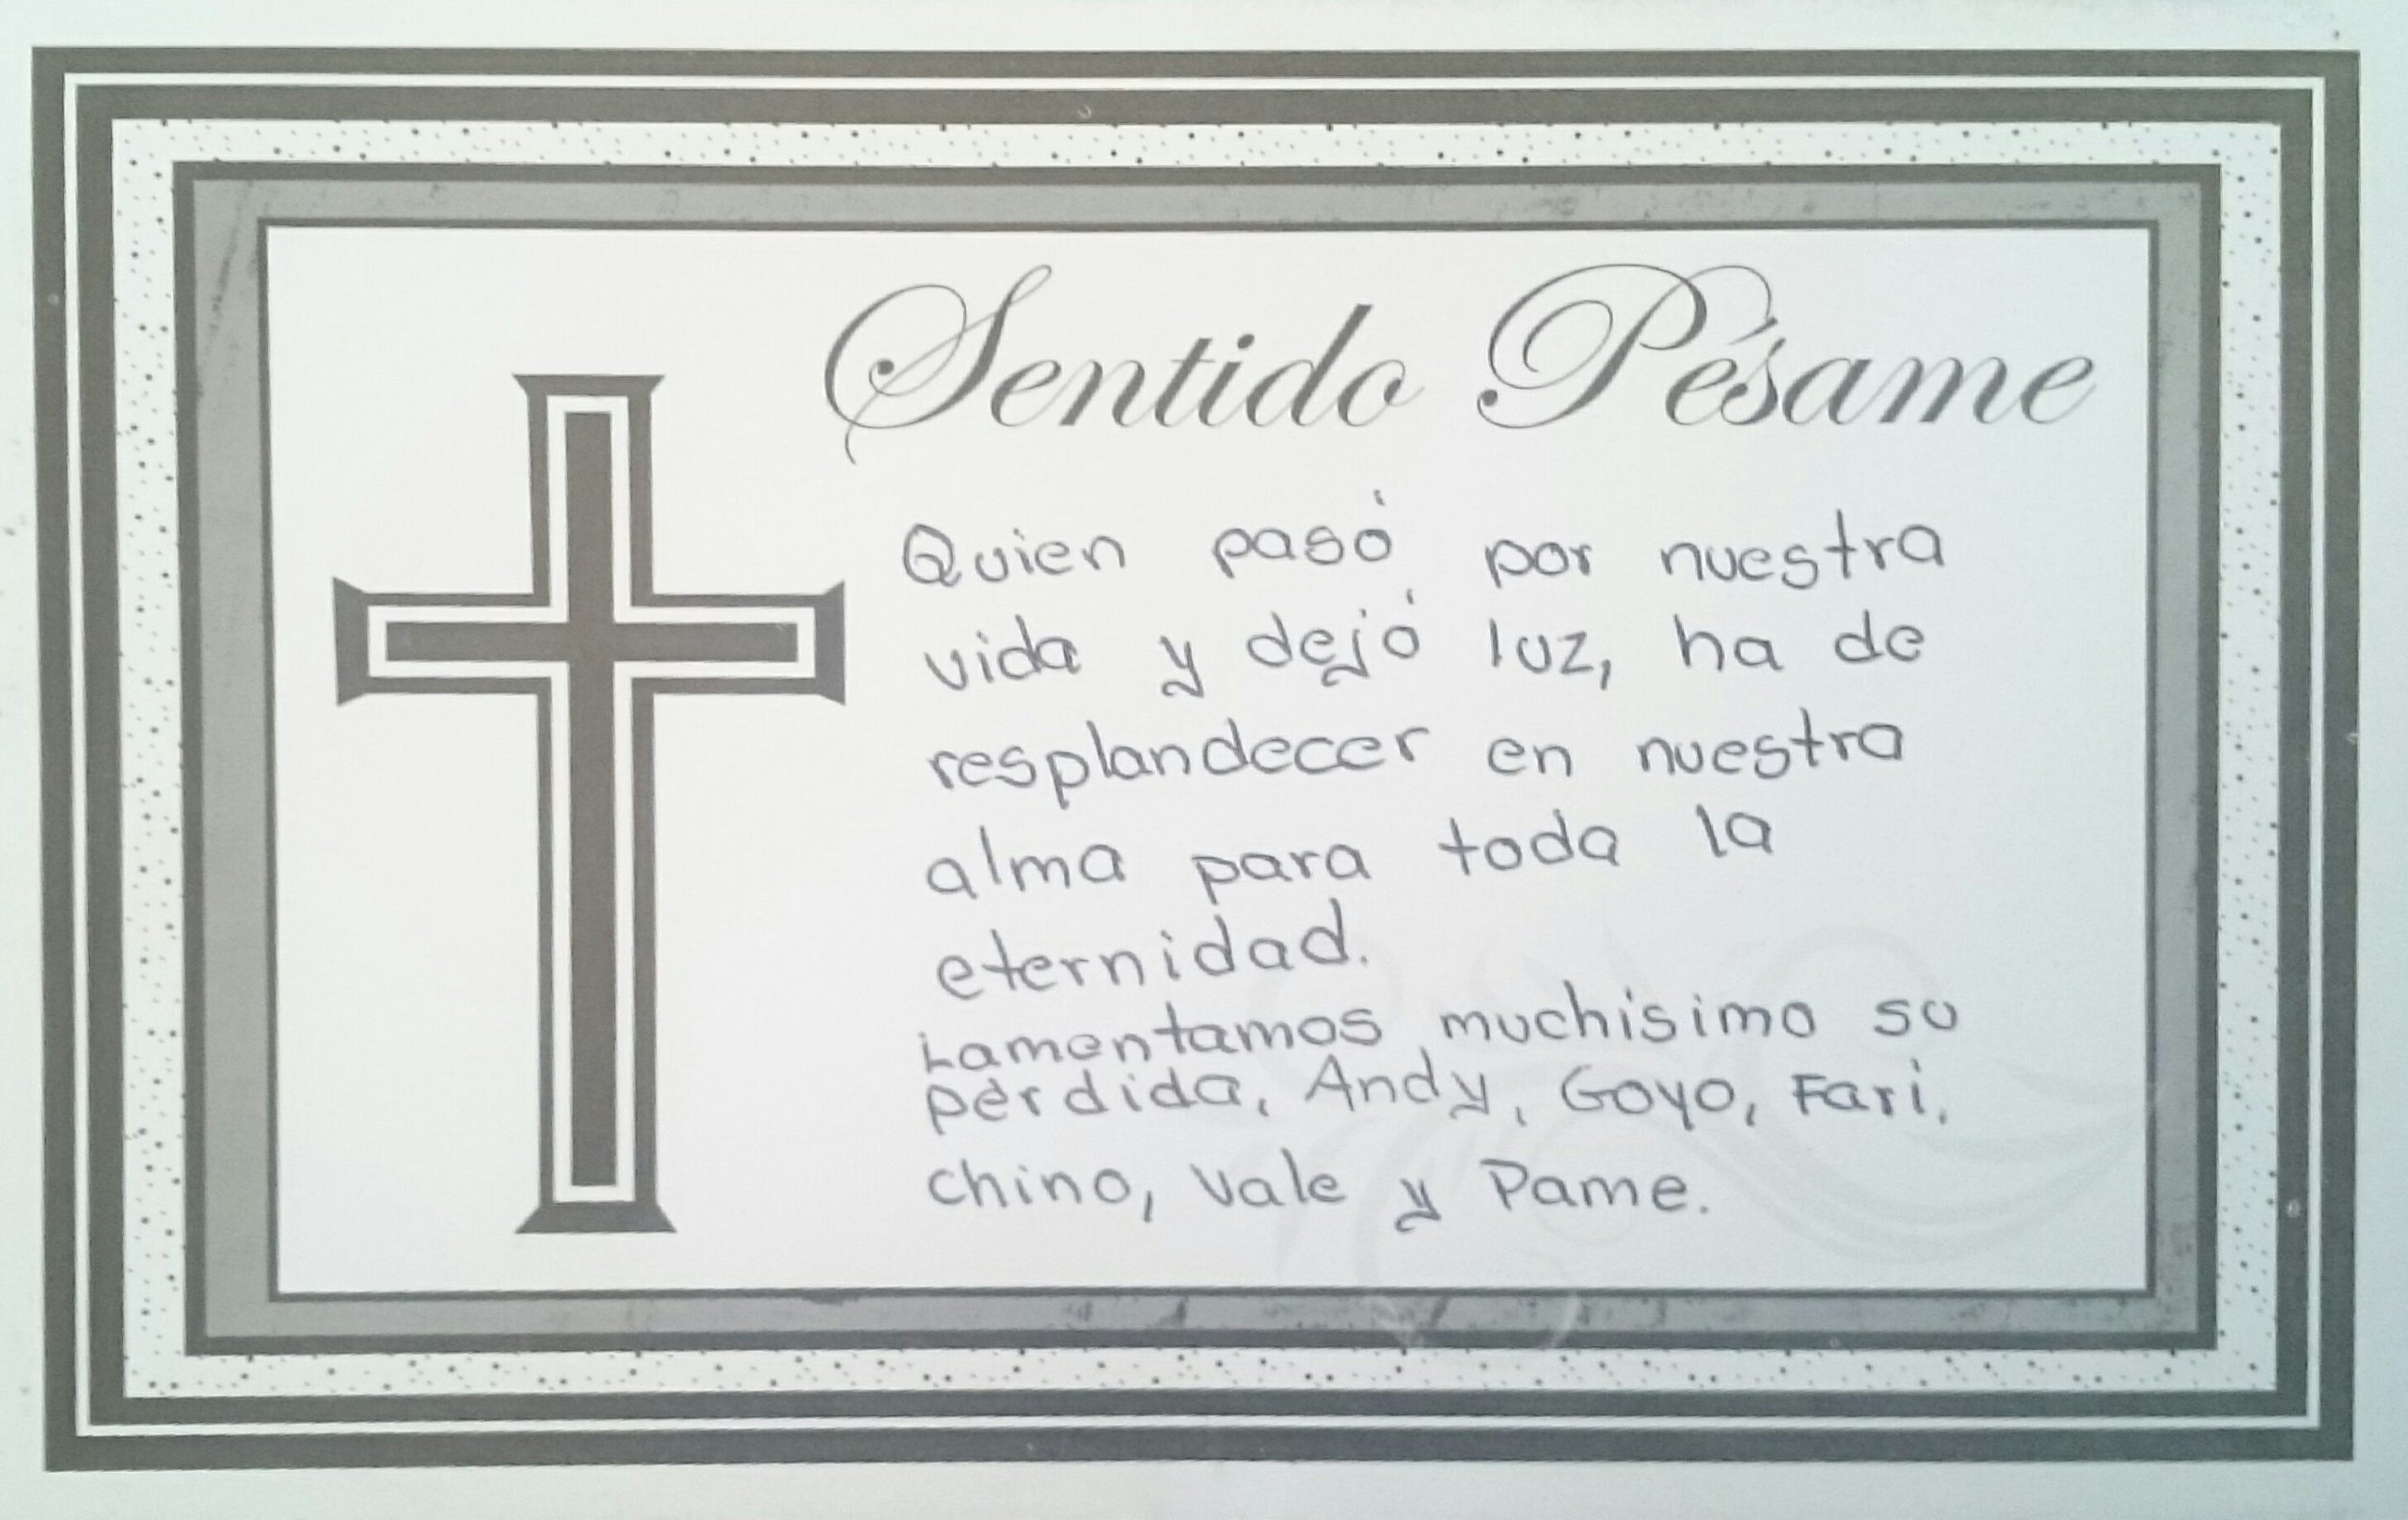 Sentido Pésame
Quien pasó por nuestra
vida y dejó luz, ha de
resplandecer en nuestra
alma para toda la
eternidad.
Lamentamos muchísimo su
pérdida, Andy, Goyo, Fari,
chino, Vale y Pame.